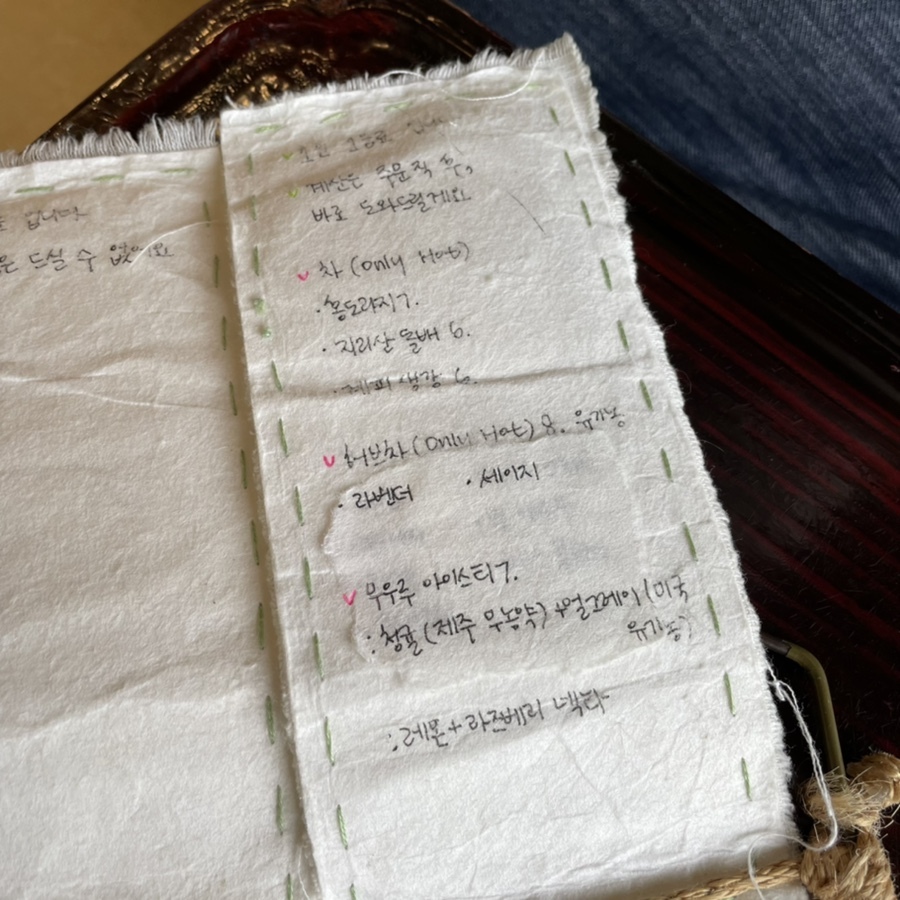 입니다
은 드실 수 없어요
계산은 주문 직 후,
바로 도와드릴게요
차 (Only Hot)
·홍도라지 7.
·지리산 돌배 6.
·계피 생강 6.
허브차 (Only Hot) 8. 유기농
·라벤더 ·세이지
무우루 아이스티 7.
:청귤 (제주 무농약) + 얼그레이 (미국
유기농)
:레몬 + 라즈베리 넥타